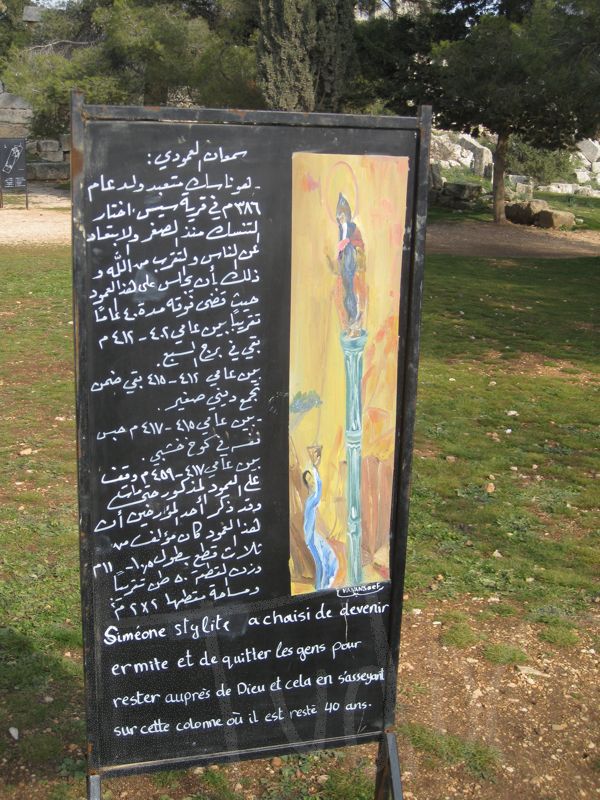 سمعان العمودي :
- هو ناسك متعبد ولد عام
٣٨٦م في قرية سيس اختار
التنسك منذ الصغر والابتعاد
عن الناس والتقرب من الله و
ذلك بأن يجلس على هذا العمود
حيث قضى فوقه مدة ٤٠ عامًا
تقريبًا بين عامي ٤٠٢ - ٤١٢ م
بقي في برج السبع.
بين عامي ٤١٢ - ٤١٥ بقي ضمن
تجمع ديني صغير.
- بين عامي ٤١٥ - ٤١٧م حبس
نفسه في كوخ خشبي.
بين عامي ٤١٧ - ٤٥٩م وقف
على العمود المذكور حتى مات
وقد ذكر أحد المؤرخين أن
هذا العمود كان مؤلف من
ثلاث قطع بطول م
وزن التضم ٥٠ طن تقريبًا
ومساحة متطها ٢×٢ م٢
Siméone stylite a chaisi de devenir
ermite et de quitter les gens pour
rester auprés de Dieu et cela en s'asseyant
sur cette colonne où il est resté 40 ans.